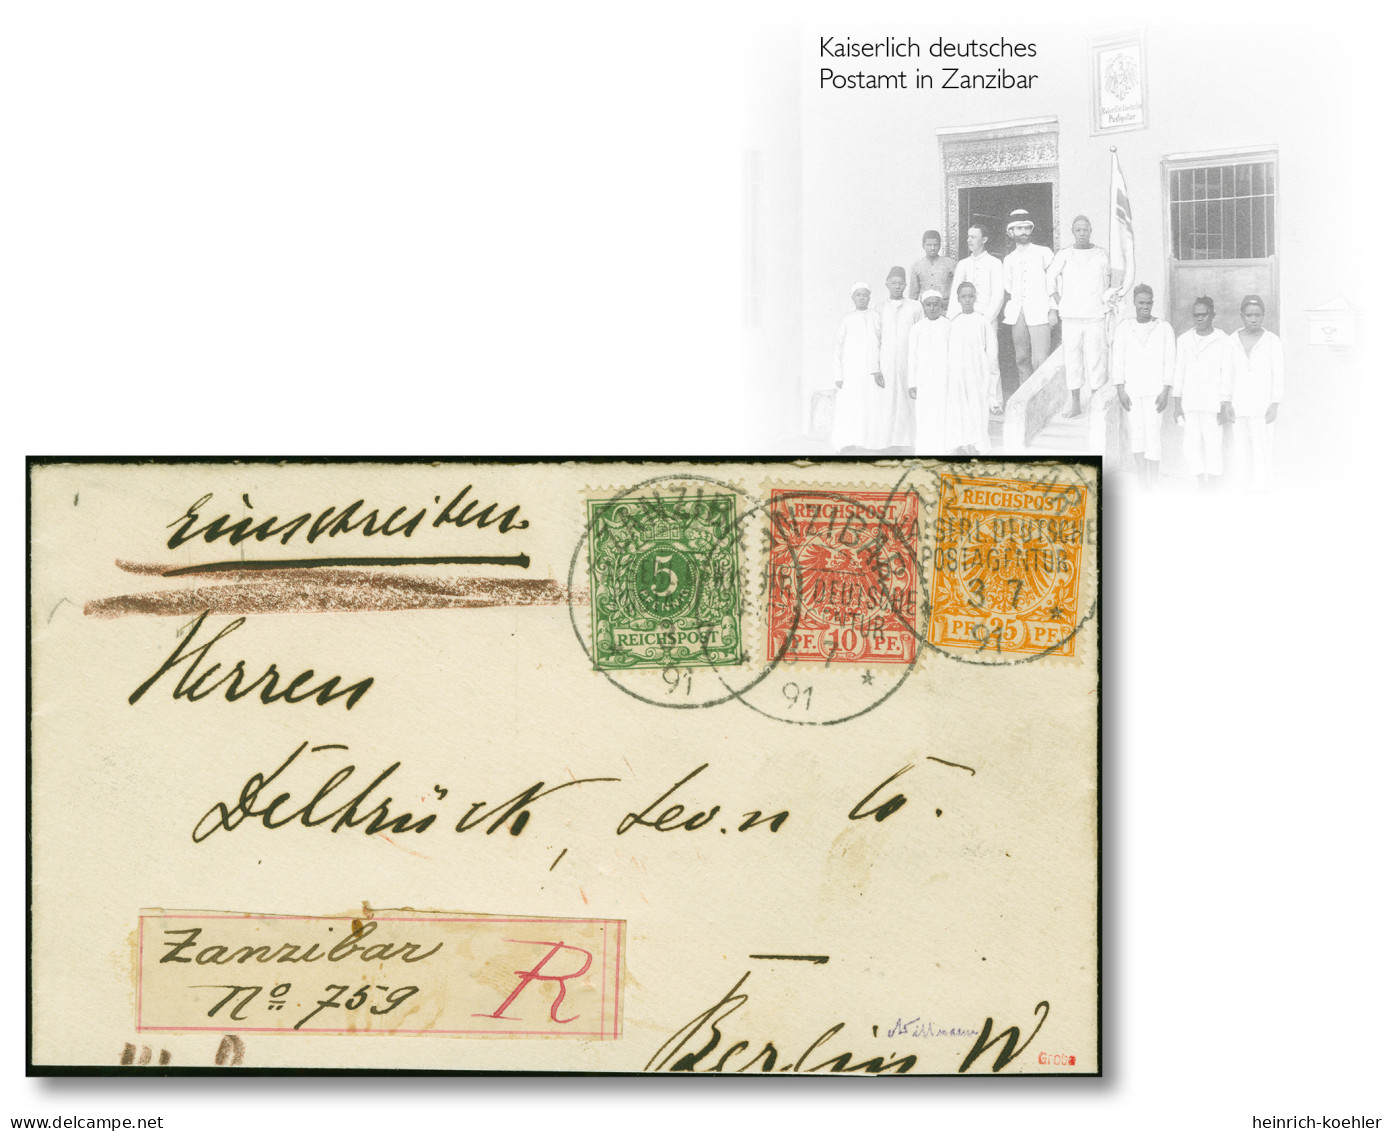 Kaiserlich deutsches
Postamt in Zanzibar
Einschreiben
Herren
Delbrück, Leo u Co.
Berlin W
Zanzibar
No. 759
R
5
REICHSPOST
91
REICHSPOST
PF. 10 PF.
ZANZIBAR
DEUTSCHE
7
91
REICHSPOST
PF. 25 PF.
ZANZIBAR
KAISERL. DEUTSCHE
POSTAGENTUR
3 7
91
Grobe
www.delcampe.net
heinrich-koehler